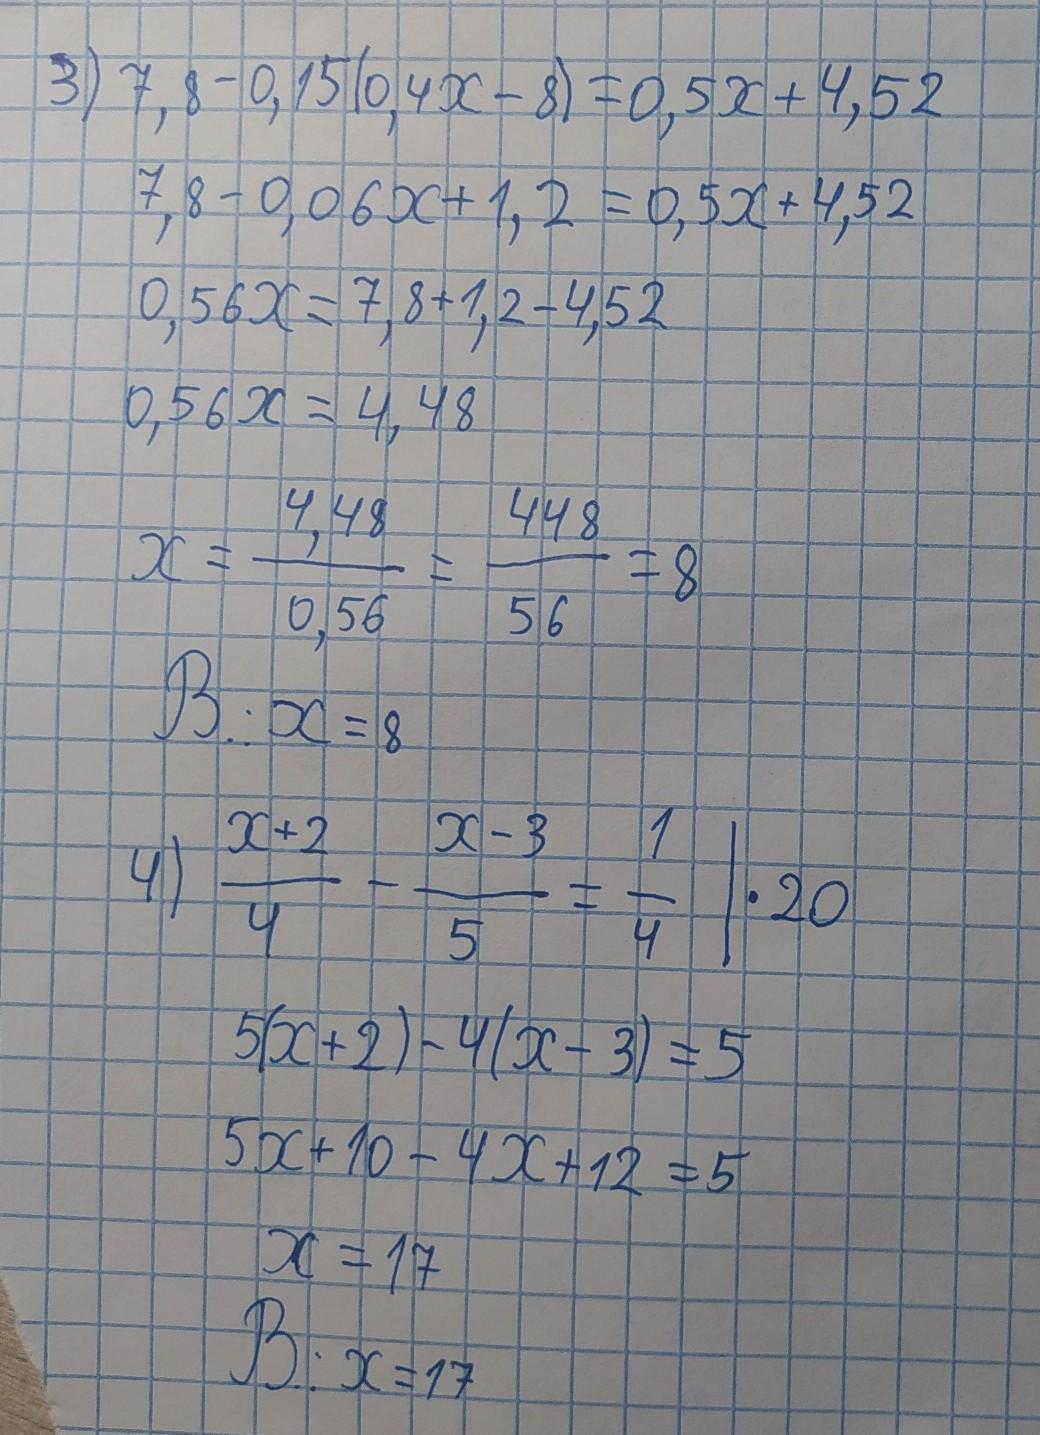 3) 7,8 - 0,15(0,4x - 8) = 0,5x + 4,52
7,8 - 0,06x + 1,2 = 0,5x + 4,52
0,56x = 7,8 + 1,2 - 4,52
0,56x = 4,48
x = 4,48/0,56 = 448/56 = 8
В: x = 8
4) (x+2)/4 - (x-3)/5 = 1/4 | · 20
5(x+2) - 4(x-3) = 5
5x + 10 - 4x + 12 = 5
x = 17
В: x = 17